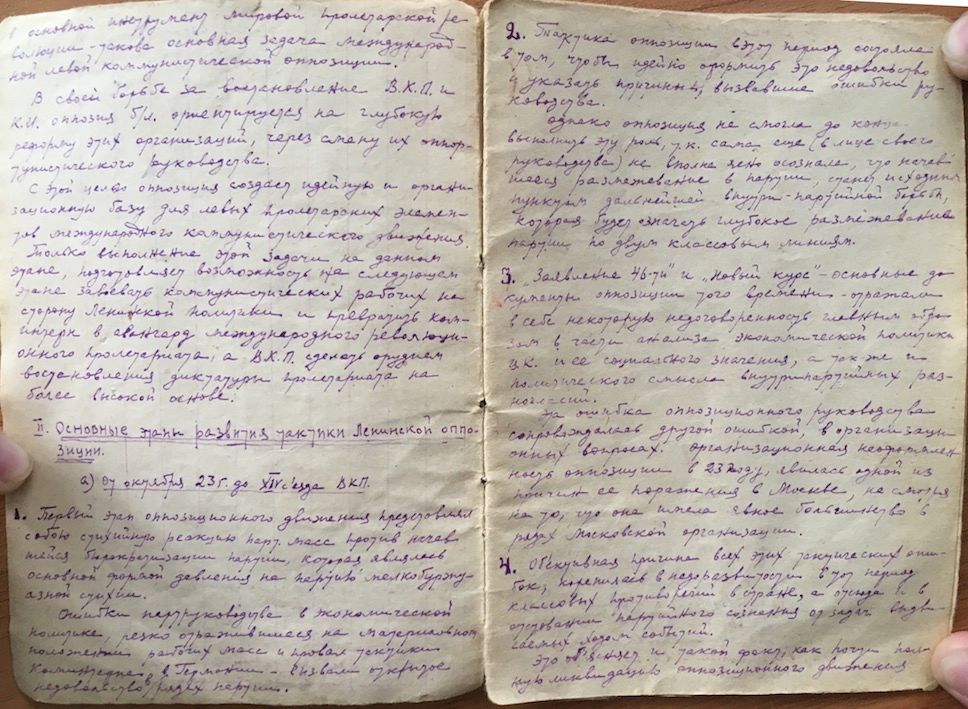 в основной инструмент мировой пролетарской ре-
волюции - такова основная задача международ-
ной левой коммунистической оппозиции.
В своей борьбе за востановление В.К.П. и
К.И. оппозия б/л. ориентируется на глубокую
реформу этих организаций, через смену их оппор-
тунистического руководства.
С этой целью оппозиция создает идейную и органи-
зационную базу для левых пролетарских элемен-
тов международного коммунистического движения.
Только выполнение этой задачи на данном
этапе, подготовляет возможность на следующем
этапе завоевать коммунистических рабочих на
сторону Ленинской политики и превратить ком-
интерн в авангард международного революци-
онного пролетариата, а В.К.П. сделать орудием
востановления диктатуры пролетариата на
более высокой основе.
II. Основные этапы развития тактики Ленинской оппо-
зиции.
а) От октября 23 г. до XIV съезда ВКП.
1. Первый этап оппозиционного движения представлял
собою стихийную реакцию парт. масс против начав-
шейся бюрократизации партии, которая являлась
основной формой давления на партию мелкобуржу-
азной стихии.
Ошибки партруководства в экономической
политике, резко отразившиеся на материальном
положении рабочих масс и провал тактики
Коминтерна в Германии - вызвали открытое
недовольство в рядах партии.
2. Тактика оппозиции в этот период состояла
в том, чтобы идейно оформить это недовольство
и указать причины, вызвавшие ошибки ру-
ководства.
Однако оппозиция не смогла до конца
выполнить эту роль, т.к. сама еще (в лице своего
руководства) не вполне ясно осознала, что начав-
шееся размежевание в партии, станет исходным
пунктом дальнейшей внутри-партийной борьбы,
которая будет означать глубокое размежевание
партии по двум классовым линиям.
3. "Заявление 46-ти" и "Новый курс" - основные до-
кументы оппозиции того времени - отражали
в себе некоторую недоговоренность главным обра-
зом в части анализа экономической политики
Ц.К. и ее социального значения, а так же и
политического смысла внутрипартийных раз-
ногласий.
Эта ошибка оппозиционного руководства
сопровождалась другой ошибкой, в организаци-
онных вопросах. Организационная неоформлен-
ность оппозиции в 23 году, явилась одной из
причин ее поражения в Москве, не смотря
на то, что она имела явное большинство в
рядах Московской организации.
4. Объективная причина всех этих тактических оши-
бок, коренилась в неразвитости в тот период
классовых противоречий в стране, а отсюда и в
отставании партийного сознания от задач выдви-
гаемых ходом событий.
Это объясняет и такой факт, как почти пол-
ную ликвидацию оппозиционного движения